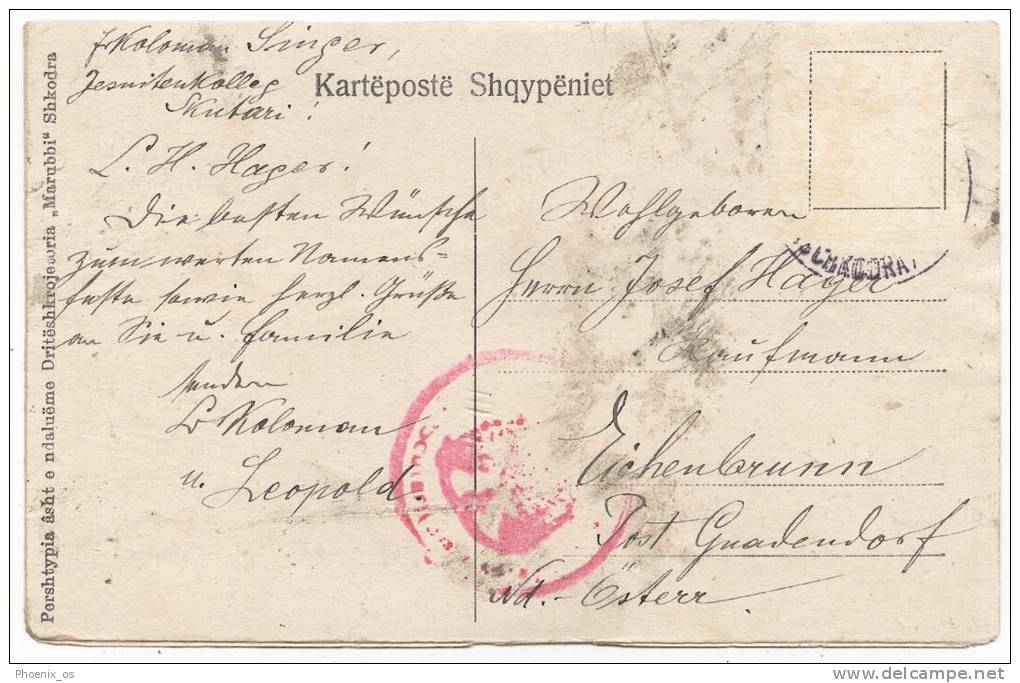 Fr Koloman Singer,
Jesuitenkolleg
Skutari!
Kartëpostë Shqypëniet
L. H. Hager!
Die besten Wünsche
zum werten Namens-
feste sowie herzl. Grüße
an Sie u. Familie
senden
Br Koloman
u. Leopold.
Wohlgeboren
Herrn Josef Hager
Kaufmann
Eichenbrunn
Post Gnadendorf
Nd.-Österr.
Pershtypia âsht e ndaluëme Dritëshkrojetoria „Marubbi“ Shkodra
Phoenix_os
www.delcampe.net